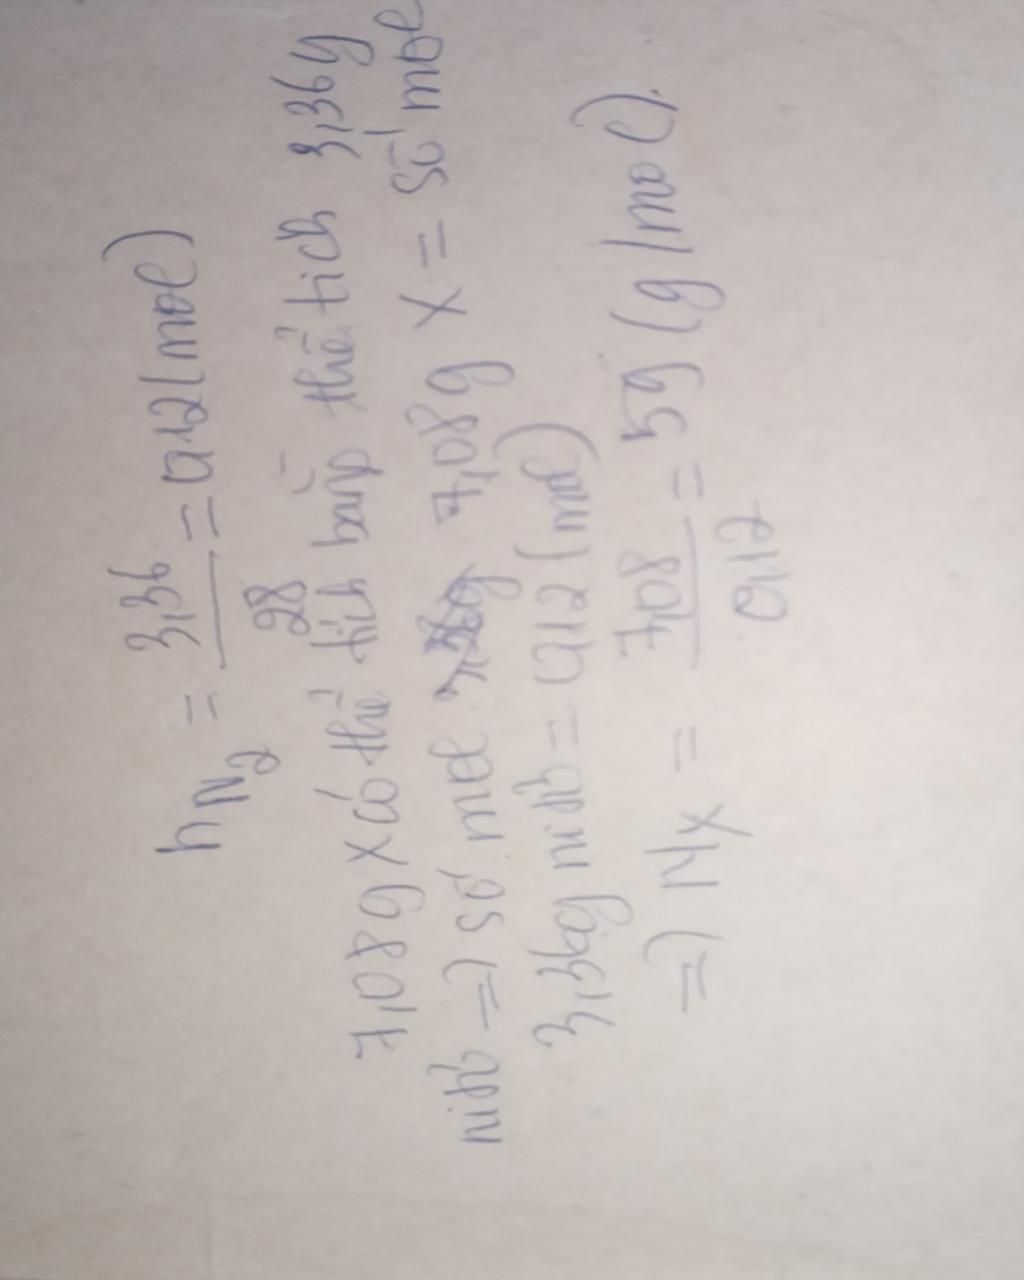 nN2 = 3,36/28 = 0,12 (mol)
7,08g X có thể tích bằng thể tích 3,36g
nitơ => số mol 7,08g X = số mol
3,36g nitơ = 0,12 (mol)
=> Mx = 7,08/0,12 = 59 (g/mol).